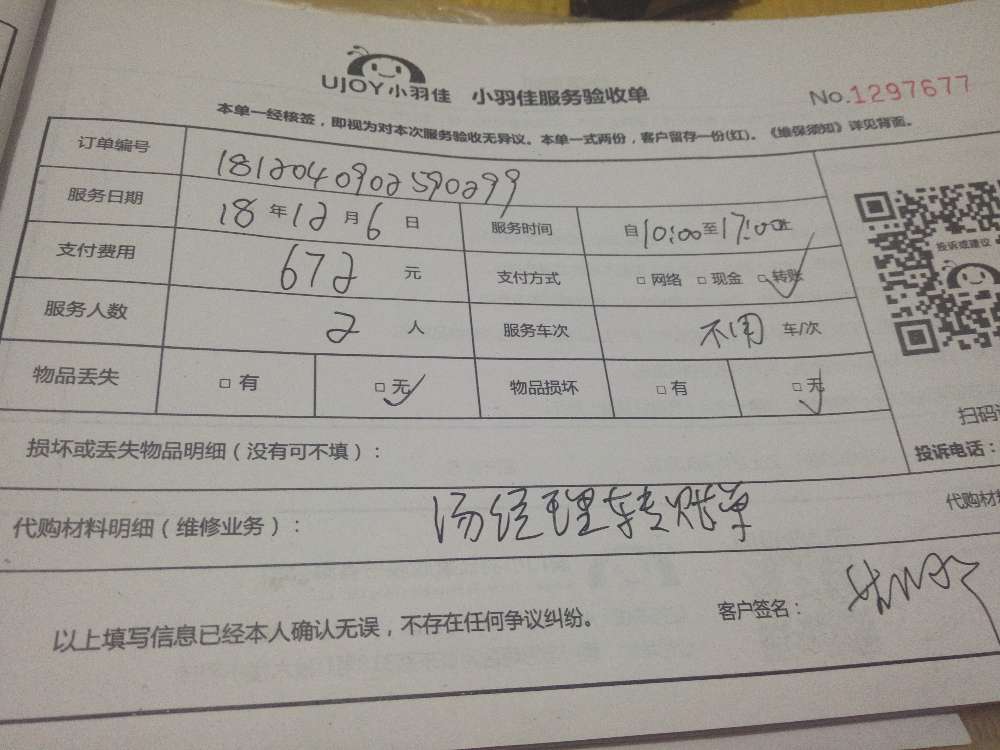 UJOY小羽佳 小羽佳服务验收单 No.1297677
本单一经核签，即视为对本次服务验收无异议。本单一式两份，客户留存一份(红)。《维保须知》详见背面。
订单编号 1812040902590299
服务日期 18 年 12 月 6 日 服务时间 自10:00至17:00止
支付费用 672 元 支付方式 □ 网络 □ 现金 □ 转账
服务人数 2 人 服务车次 不用 车/次
物品丢失 □ 有 □ 无 物品损坏 □ 有 □ 无
投诉或建议
扫码
投诉电话：
损坏或丢失物品明细（没有可不填）：
代购材料明细（维修业务）： 汤经理转账单 代购材料
以上填写信息已经本人确认无误，不存在任何争议纠纷。 客户签名：